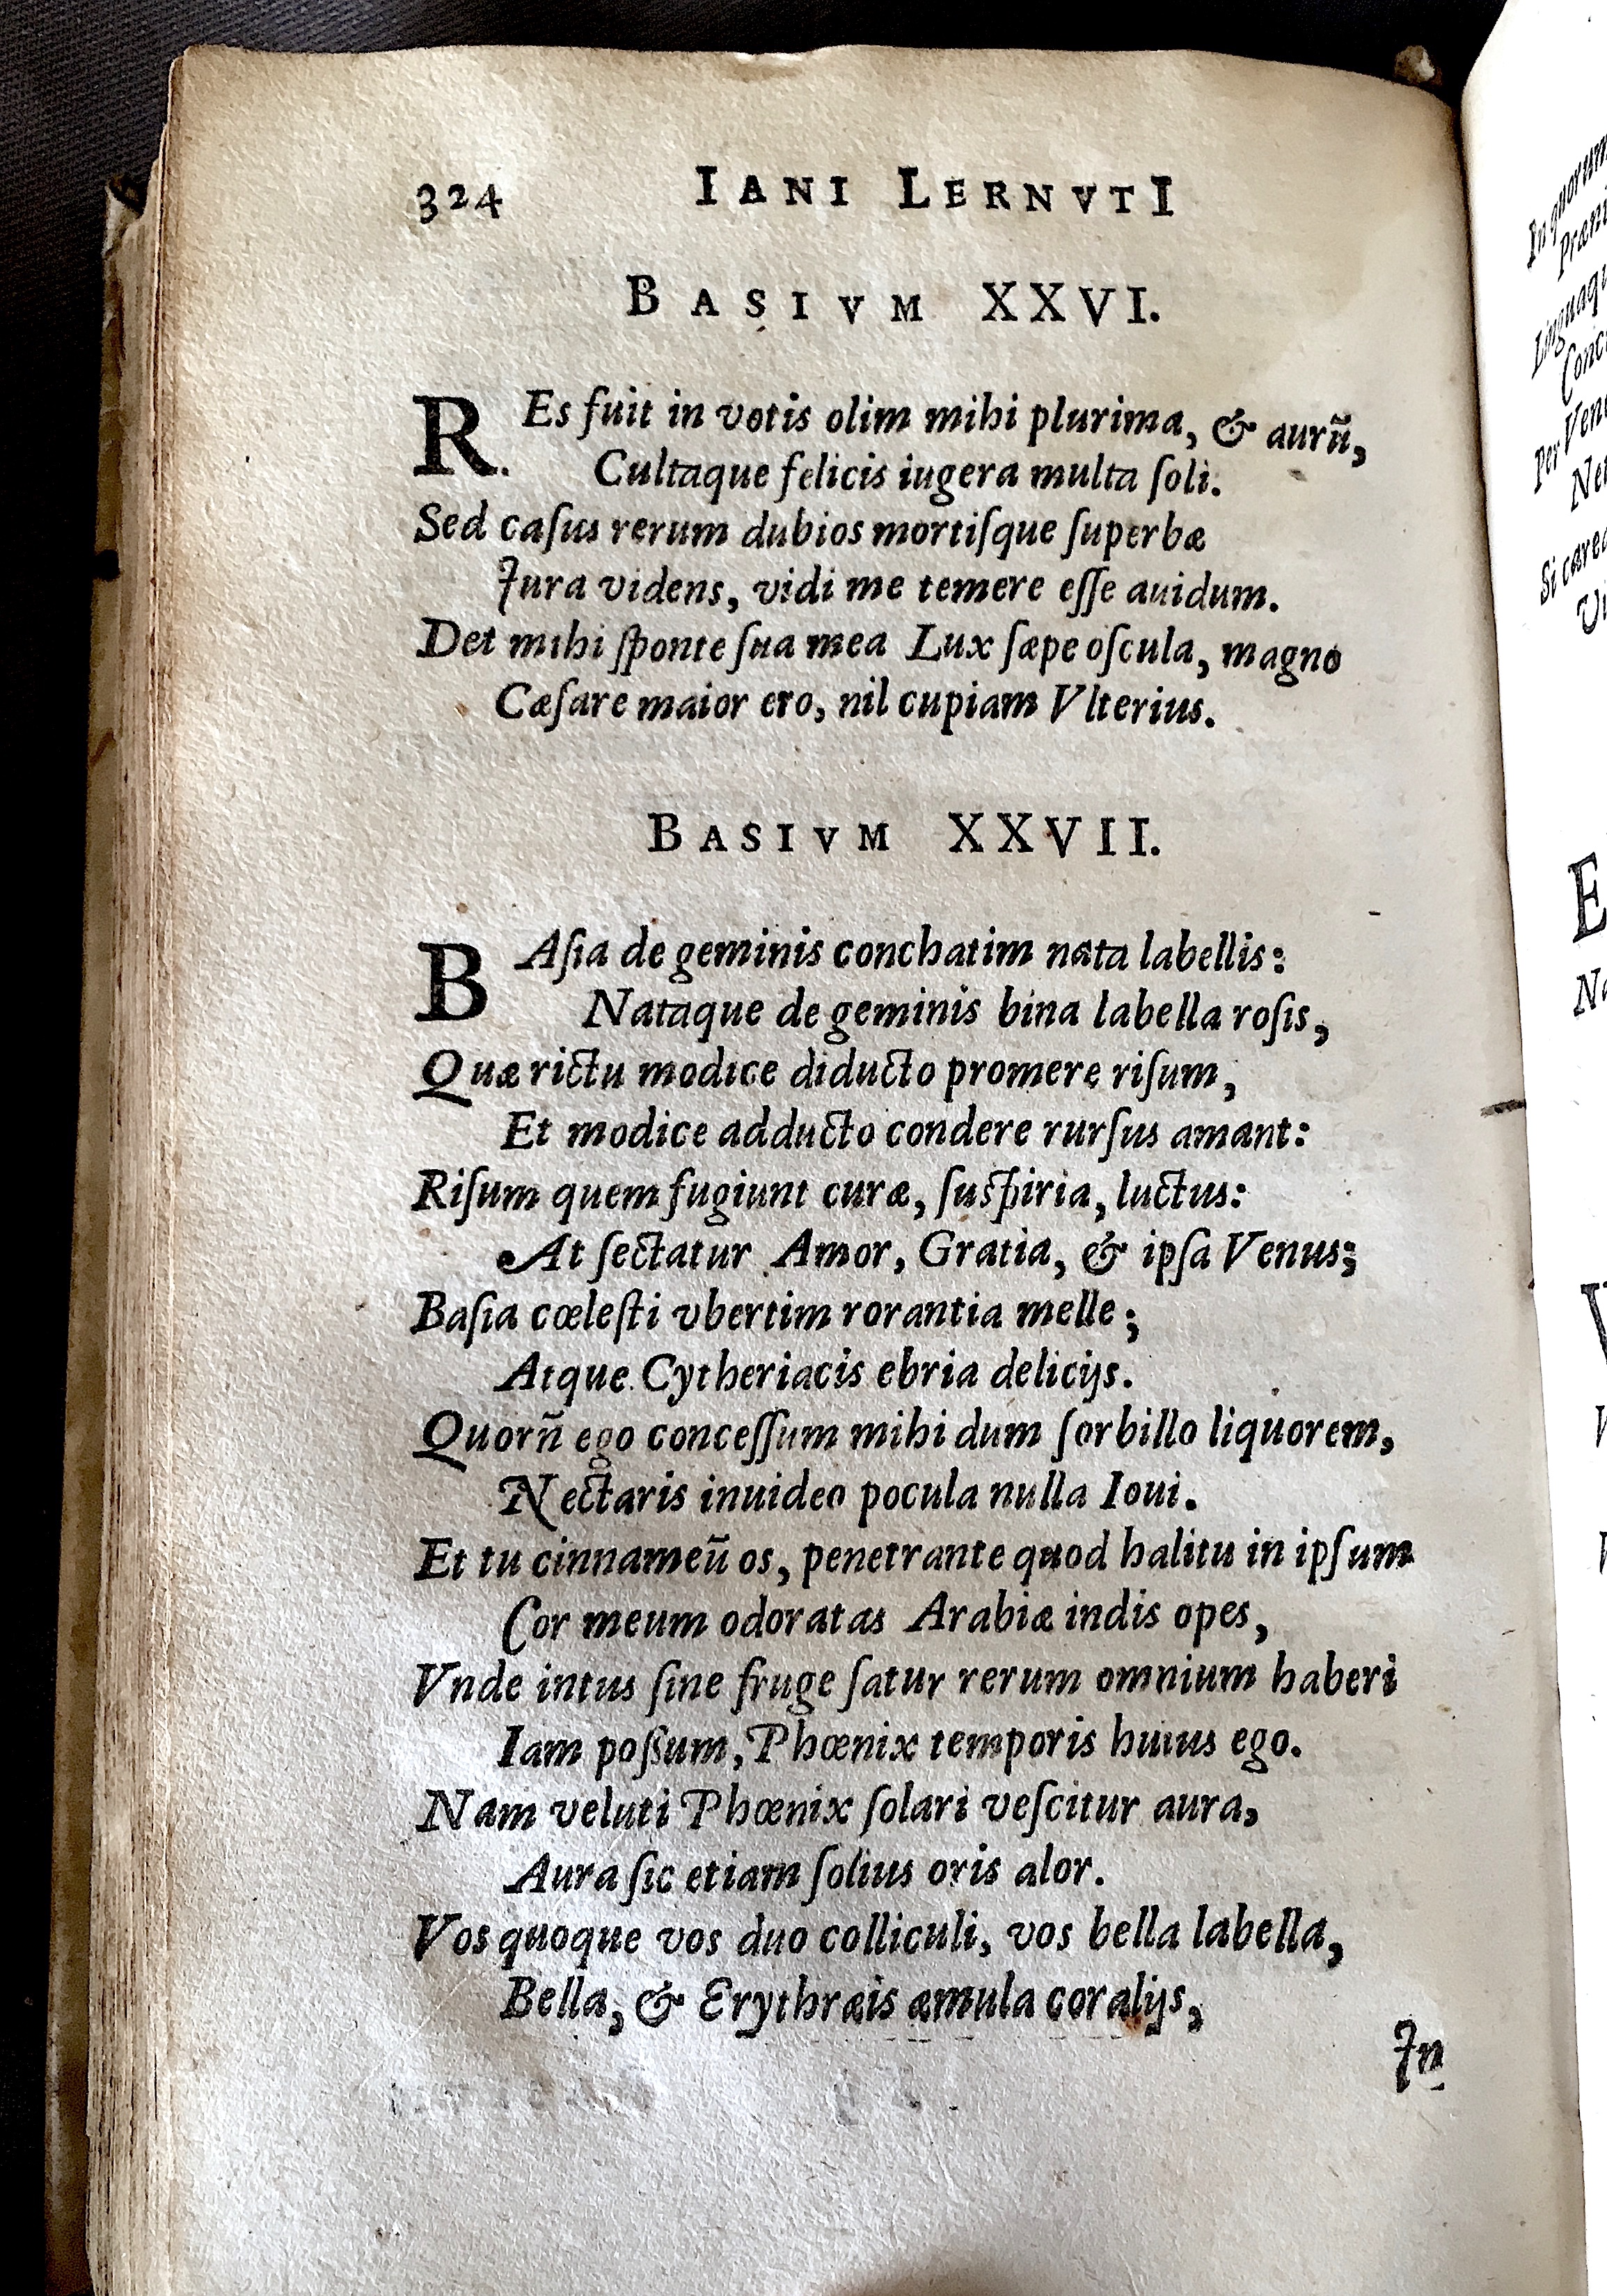 324 IANI LERNVTI
BASIVM XXVI.
REs fuit in votis olim mihi plurima, & aurũ,
Cultaque felicis iugera multa ſoli.
Sed caſus rerum dubios mortiſque ſuperbæ
Jura videns, vidi me temere eſſe auidum.
Det mihi ſponte ſua mea Lux ſæpe oſcula, magno
Cæſare maior ero, nil cupiam Vlterius.
BASIVM XXVII.
BAſia de geminis conchatim nata labellis:
Nataque de geminis bina labella roſis,
Quæ rictu modice diducto promere riſum,
Et modice adducto condere rurſus amant:
Riſum quem fugiunt curæ, ſuſpiria, luctus:
At ſectatur Amor, Gratia, & ipſa Venus;
Baſia cœleſti vbertim rorantia melle;
Atque Cytheriacis ebria delicijs.
Quorũ ego conceſſum mihi dum ſorbillo liquorem,
Nectaris inuideo pocula nulla Ioui.
Et tu cinnameũ os, penetrante quod halitu in ipſum
Cor meum odoratas Arabiæ indis opes,
Vnde intus ſine fruge ſatur rerum omnium haberi
Iam poſsum, Phœnix temporis huius ego.
Nam veluti Phœnix ſolari veſcitur aura,
Aura ſic etiam ſolius oris alor.
Vos quoque vos duo colliculi, vos bella labella,
Bella, & Erythræis æmula coralijs,
Jn
In quorum
Linguaq
Per Ven
Si care
E
V